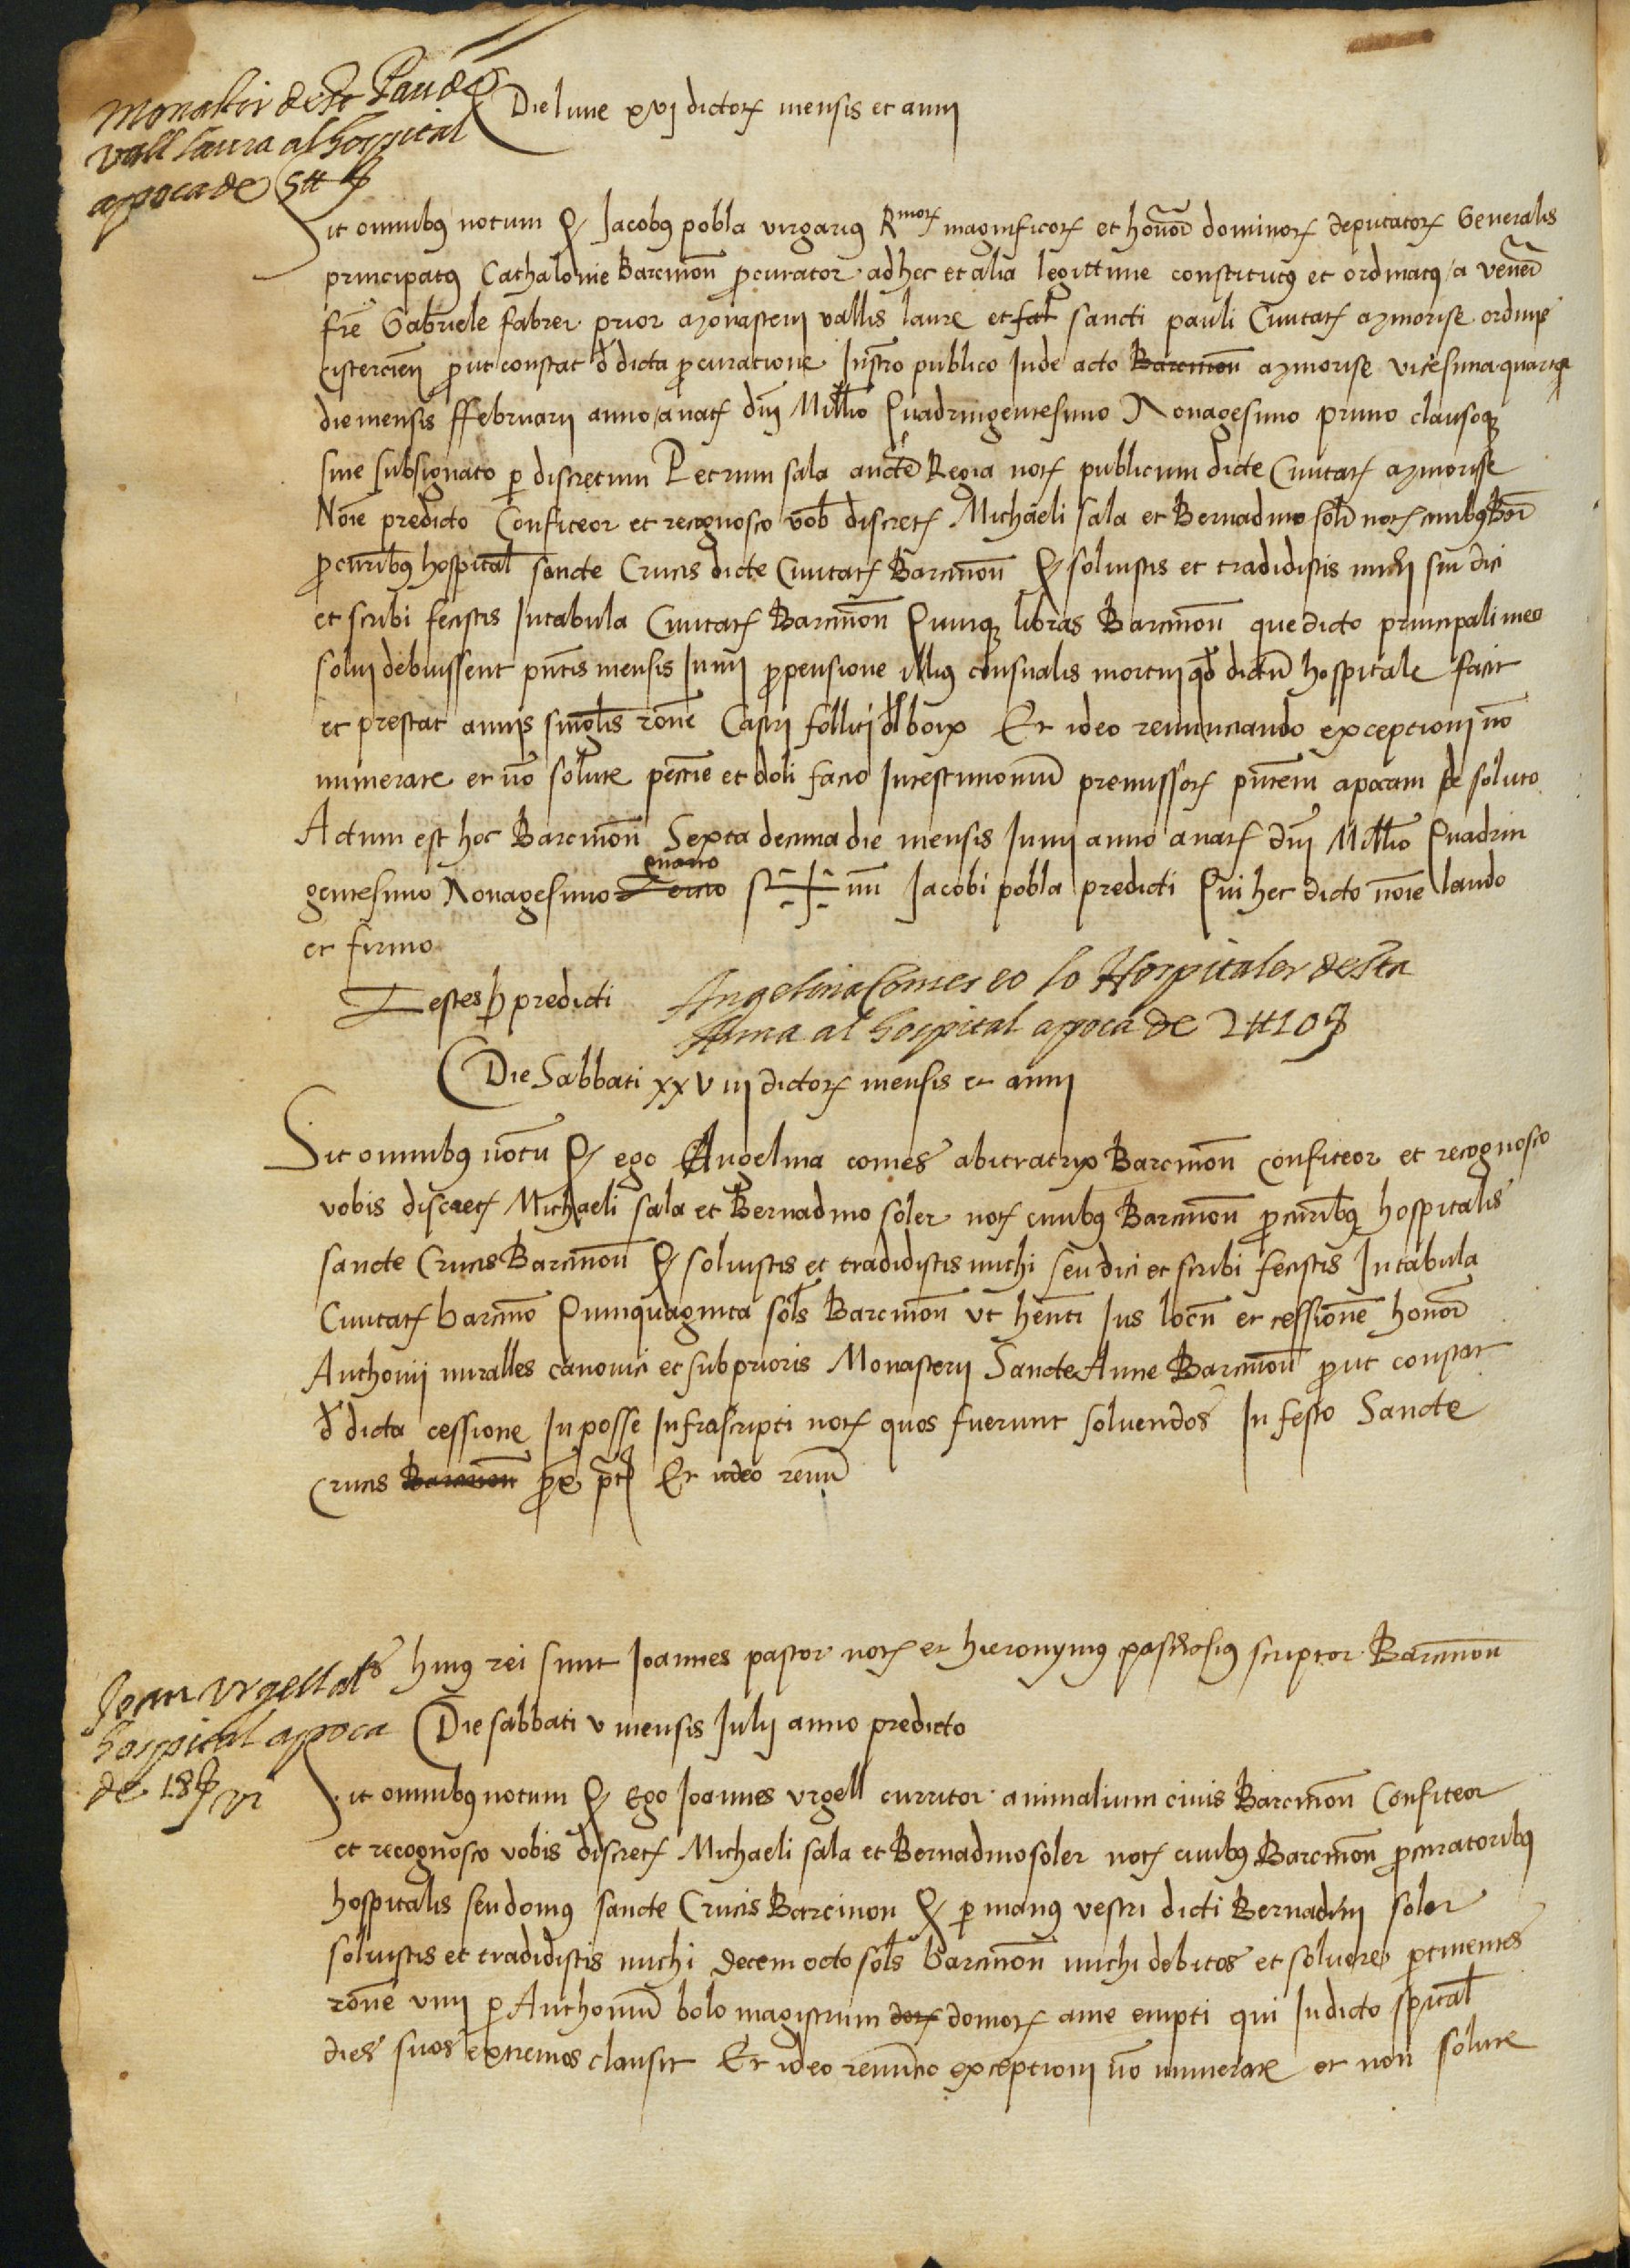 Monastir de St Pau de
vall laura al hospital
apoca de 5 ₶ ß
Die lune xvj dictorꝝ mensis et anni
Sit omnibꝰ notum ꝙ Jacobꝰ pobla virgariꝰ Rmorꝝ magnificorꝝ et honor̃ dominorꝝ deputatorꝝ Generalis
principatꝰ Cathalonie Barcinoñ ꝓcurator ad hec et alia legittime constitutꝰ et ordinatꝰ a veneĩ
fr̃e Gabriele fabrer prior monasterij vallis laure et sancti pauli Ciuitatꝭ Minorise ordinis
cistercieñ ꝓut constat đ dicta ꝓcuratione Instr̃o publico Inde acto Barcinoñ Minorise vicesima quarta
die mensis ffebruarij anno a natꝭ dñj Mill̃io Quadringentesimo Nonagesimo primo clausoqꝫ
siue subsignato ꝑ discretum Petrum sala auctẽ Regia notꝭ publicum dicte Ciuitatꝭ Minorise
Noĩe predicto Confiteor et recognosco vob̃ discretꝭ Michaeli sala et Bernadino sol̃r notꝭ ciuibꝰ Bar̃
ꝓcur̃ibꝰ hospital̃ sancte Crucis dicte Ciuitatꝭ Barcinoñ ꝙ soluistis et tradidistis michi siu dici
et scribi fecistis In tabula Ciuitatꝭ Barcinoñ Quinqꝫ libras Barcinoñ que dicto principali meo
solui debuissent pñtis mensis Junij ꝓ pensione illiꝰ censualis mortui qđ dictũ hospitale facit
et prestat annis singl̃is rõne Castri folliti đl boix Et ideo renunciando exceptioni nõ
numerate et nõ solute pecc̃ie et doli facio In testimoniũ premissorꝝ pñtem apocam de soluto
Actum est hoc Barcinoñ Sexta decima die mensis Junij anno a natꝭ dñj Mill̃io Quadrin
quarto
gentesimo Nonagesimo Tercio S✝num Jacobi pobla predicti Qui hec dicto noĩe laudo
et firmo
Testes ꝓ predicti
Angelina Comes eo lo Hospitaler de Sta
Anna al hospital apoca de 2 ₶ 10 ß
Die Sabbati xxviij dictorꝝ mensis et anni
Sit omnibꝰ notũ ꝙ ego Angelina comes abitratrix Barcinoñ confiteor et recognosco
vobis discretꝭ Michaeli sala et Bernadino soler notꝭ ciuibꝰ Barcinoñ ꝓcur̃ibꝰ hospitalis
sancte Crucis Barcinoñ ꝙ soluistis et tradidistis michi seu dici et scribi fecistis In tabula
Ciuitatꝭ barcinõ Quinquaginta sol̃s Barcinoñ vt hẽnti Jus locũ et cessionẽ honor̃
Anthonij miralles canonici et subprioris Monasterij Sancte Anne Barcinoñ ꝓut constat
đ dicta cessione In posse Infrascripti notꝭ quos fuerunt soluendos In festo Sancte
Crucis Barcinoñ ꝓx̃ p̃tꝭ Et ideo renũ
ts huiꝰ rei sunt Joannes pastor notꝭ et hieronymꝰ scriptor Barcinoñ
Joan Vrgell al
hospital apoca
de 18 ß vi
Die sabbati v mensis Julij anno predicto
Sit omnibꝰ notum ꝙ Ego Joannes vrgell curritor animalium ciuis Barcinoñ Confiteor
et recognosco vobis discretꝭ Michaeli sala et Bernadino soler notꝭ ciuibꝰ Barcinoñ ꝓcuratoribꝰ
hospitalis seu domꝰ sancte Crucis Barcinon ꝙ ꝑ manꝰ vestri dicti Bernadini soler
soluistis et tradidistis michi decem octo sol̃s barcinoñ michi debitos et soluere ꝑtinentes
rõne vini ꝑ Anthoniũ bolo magistrum domorꝝ a me empti qui In dicto spital̃
dies suos extremos clausit Et ideo renũcio exceptioni nõ numerate et non solute